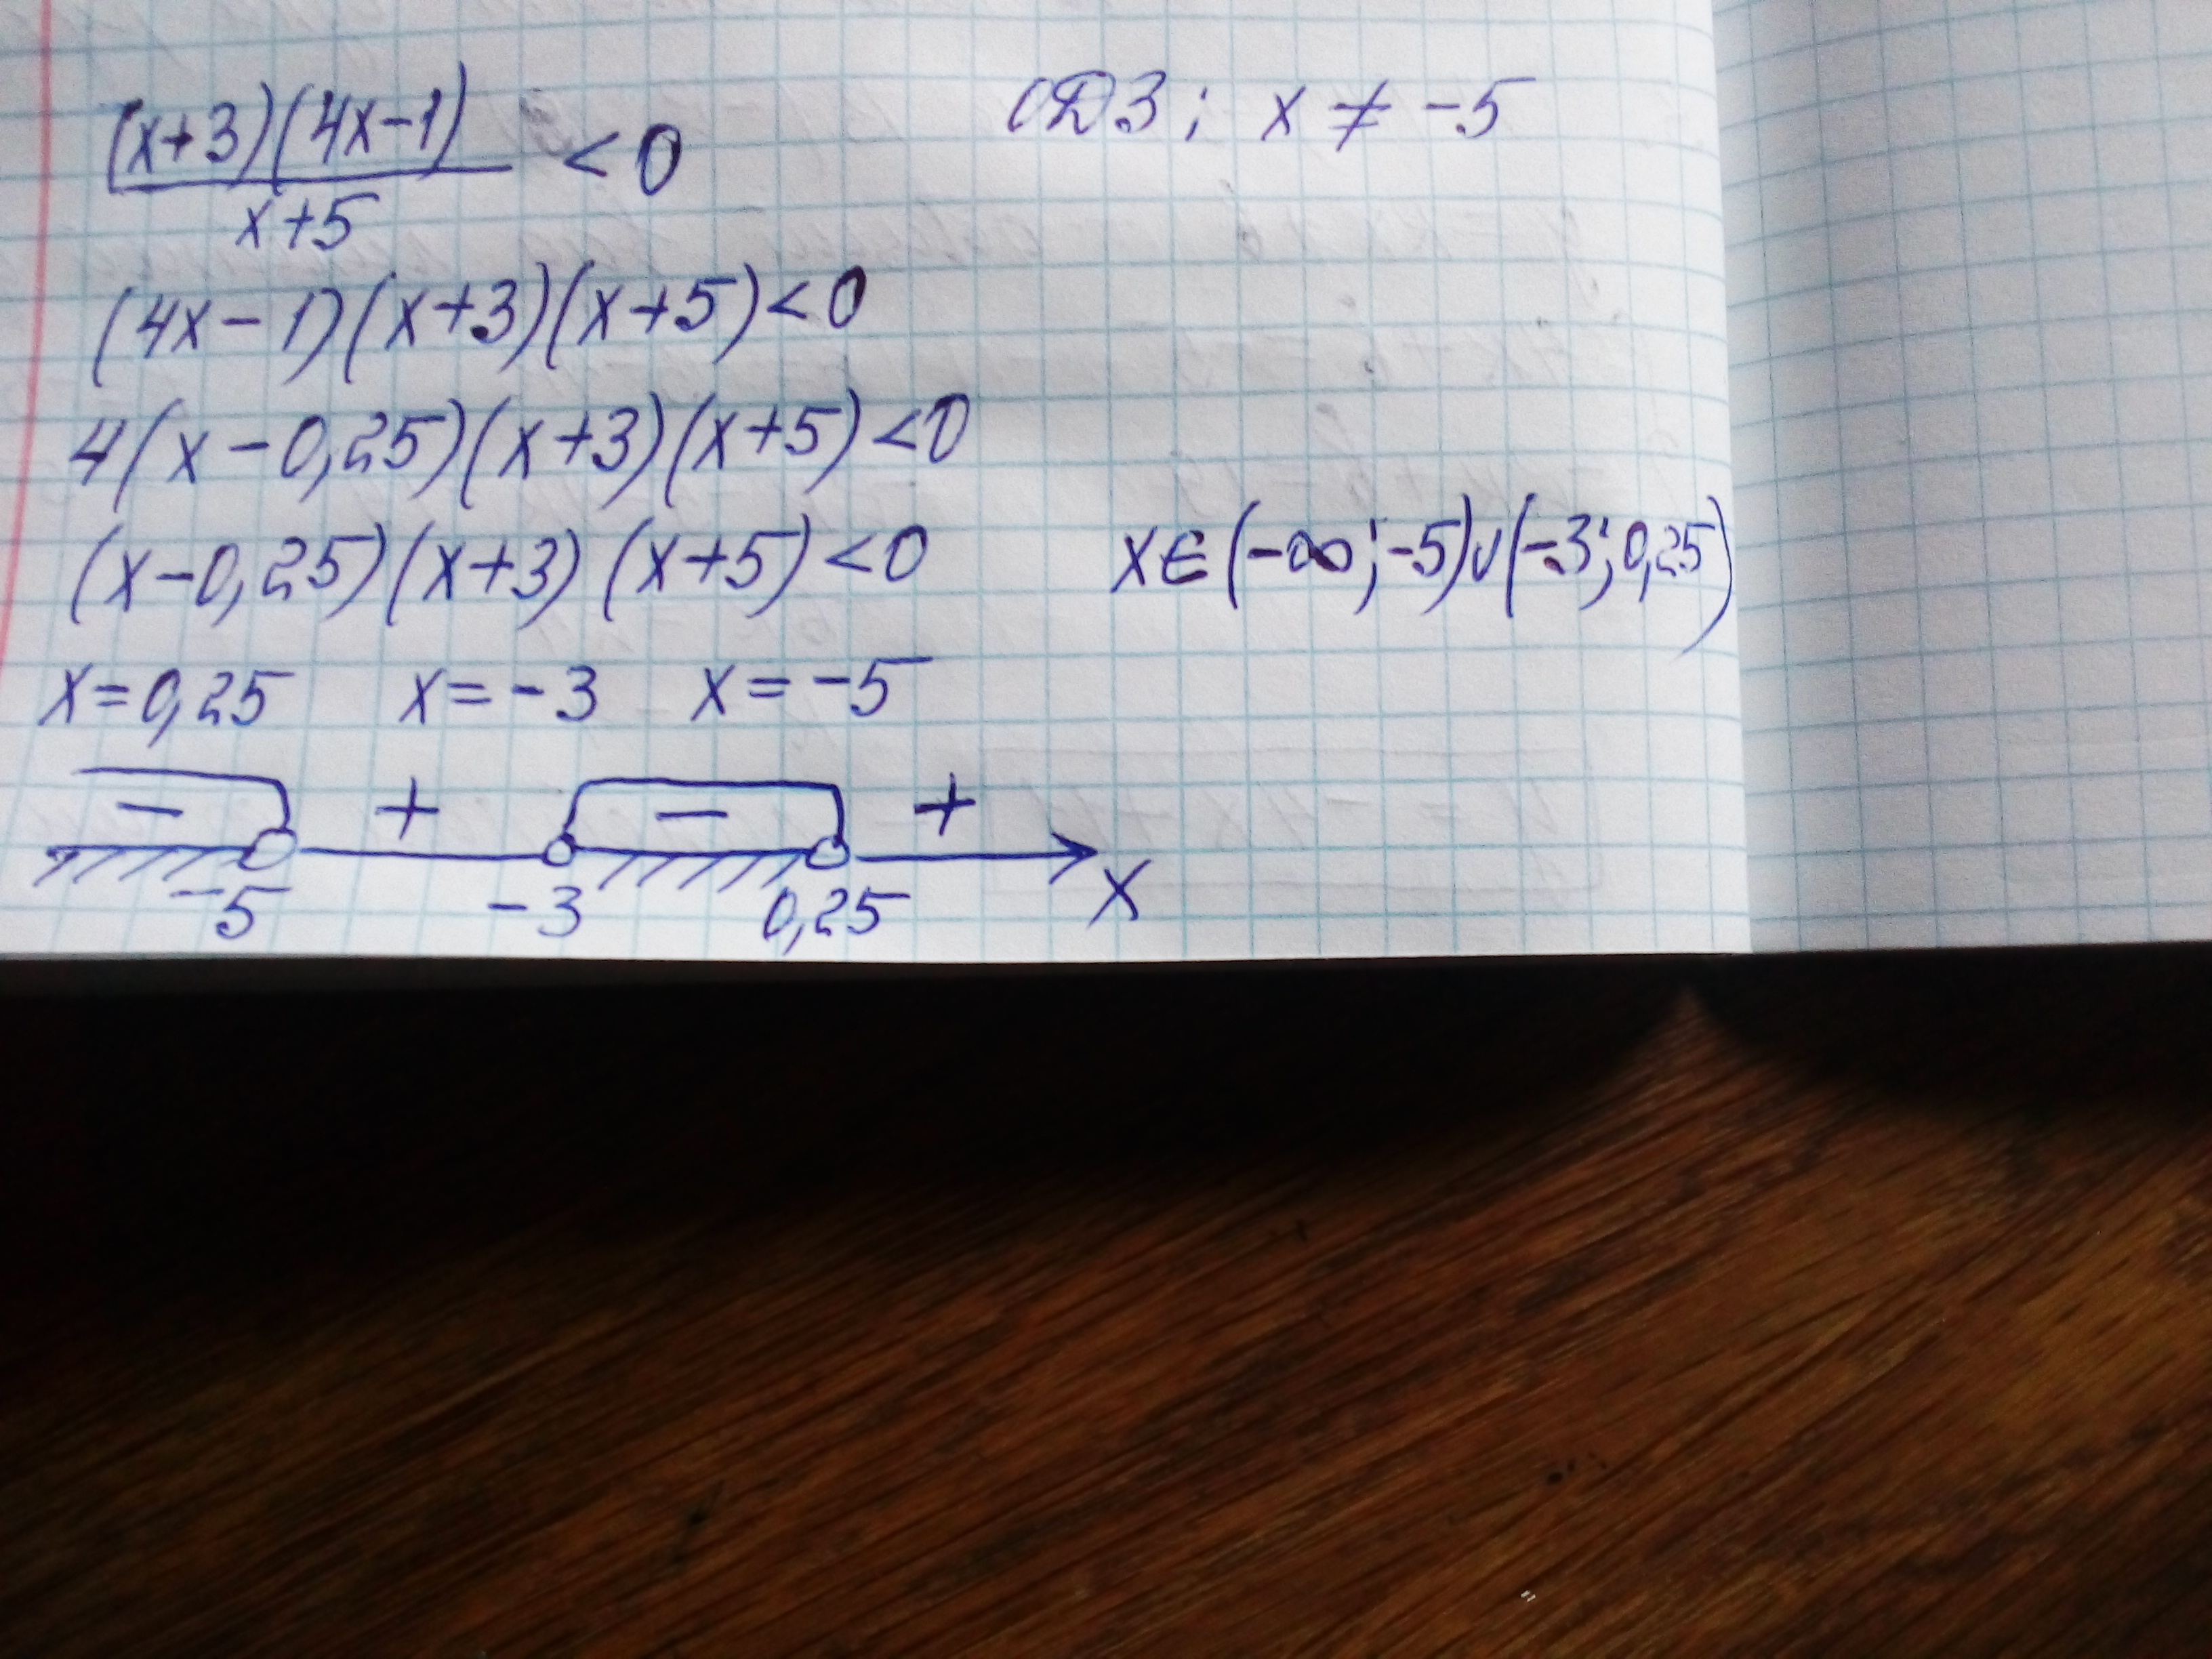 (x+3)(4x-1)/x+5 < 0
ОДЗ; x ≠ -5
(4x-1)(x+3)(x+5)<0
4(x-0,25)(x+3)(x+5)<0
(x-0,25)(x+3)(x+5)<0
x∈(-∞;-5)∪(-3;0,25)
x=0,25 x=-3 x=-5
- + - +
-5 -3 0,25 x